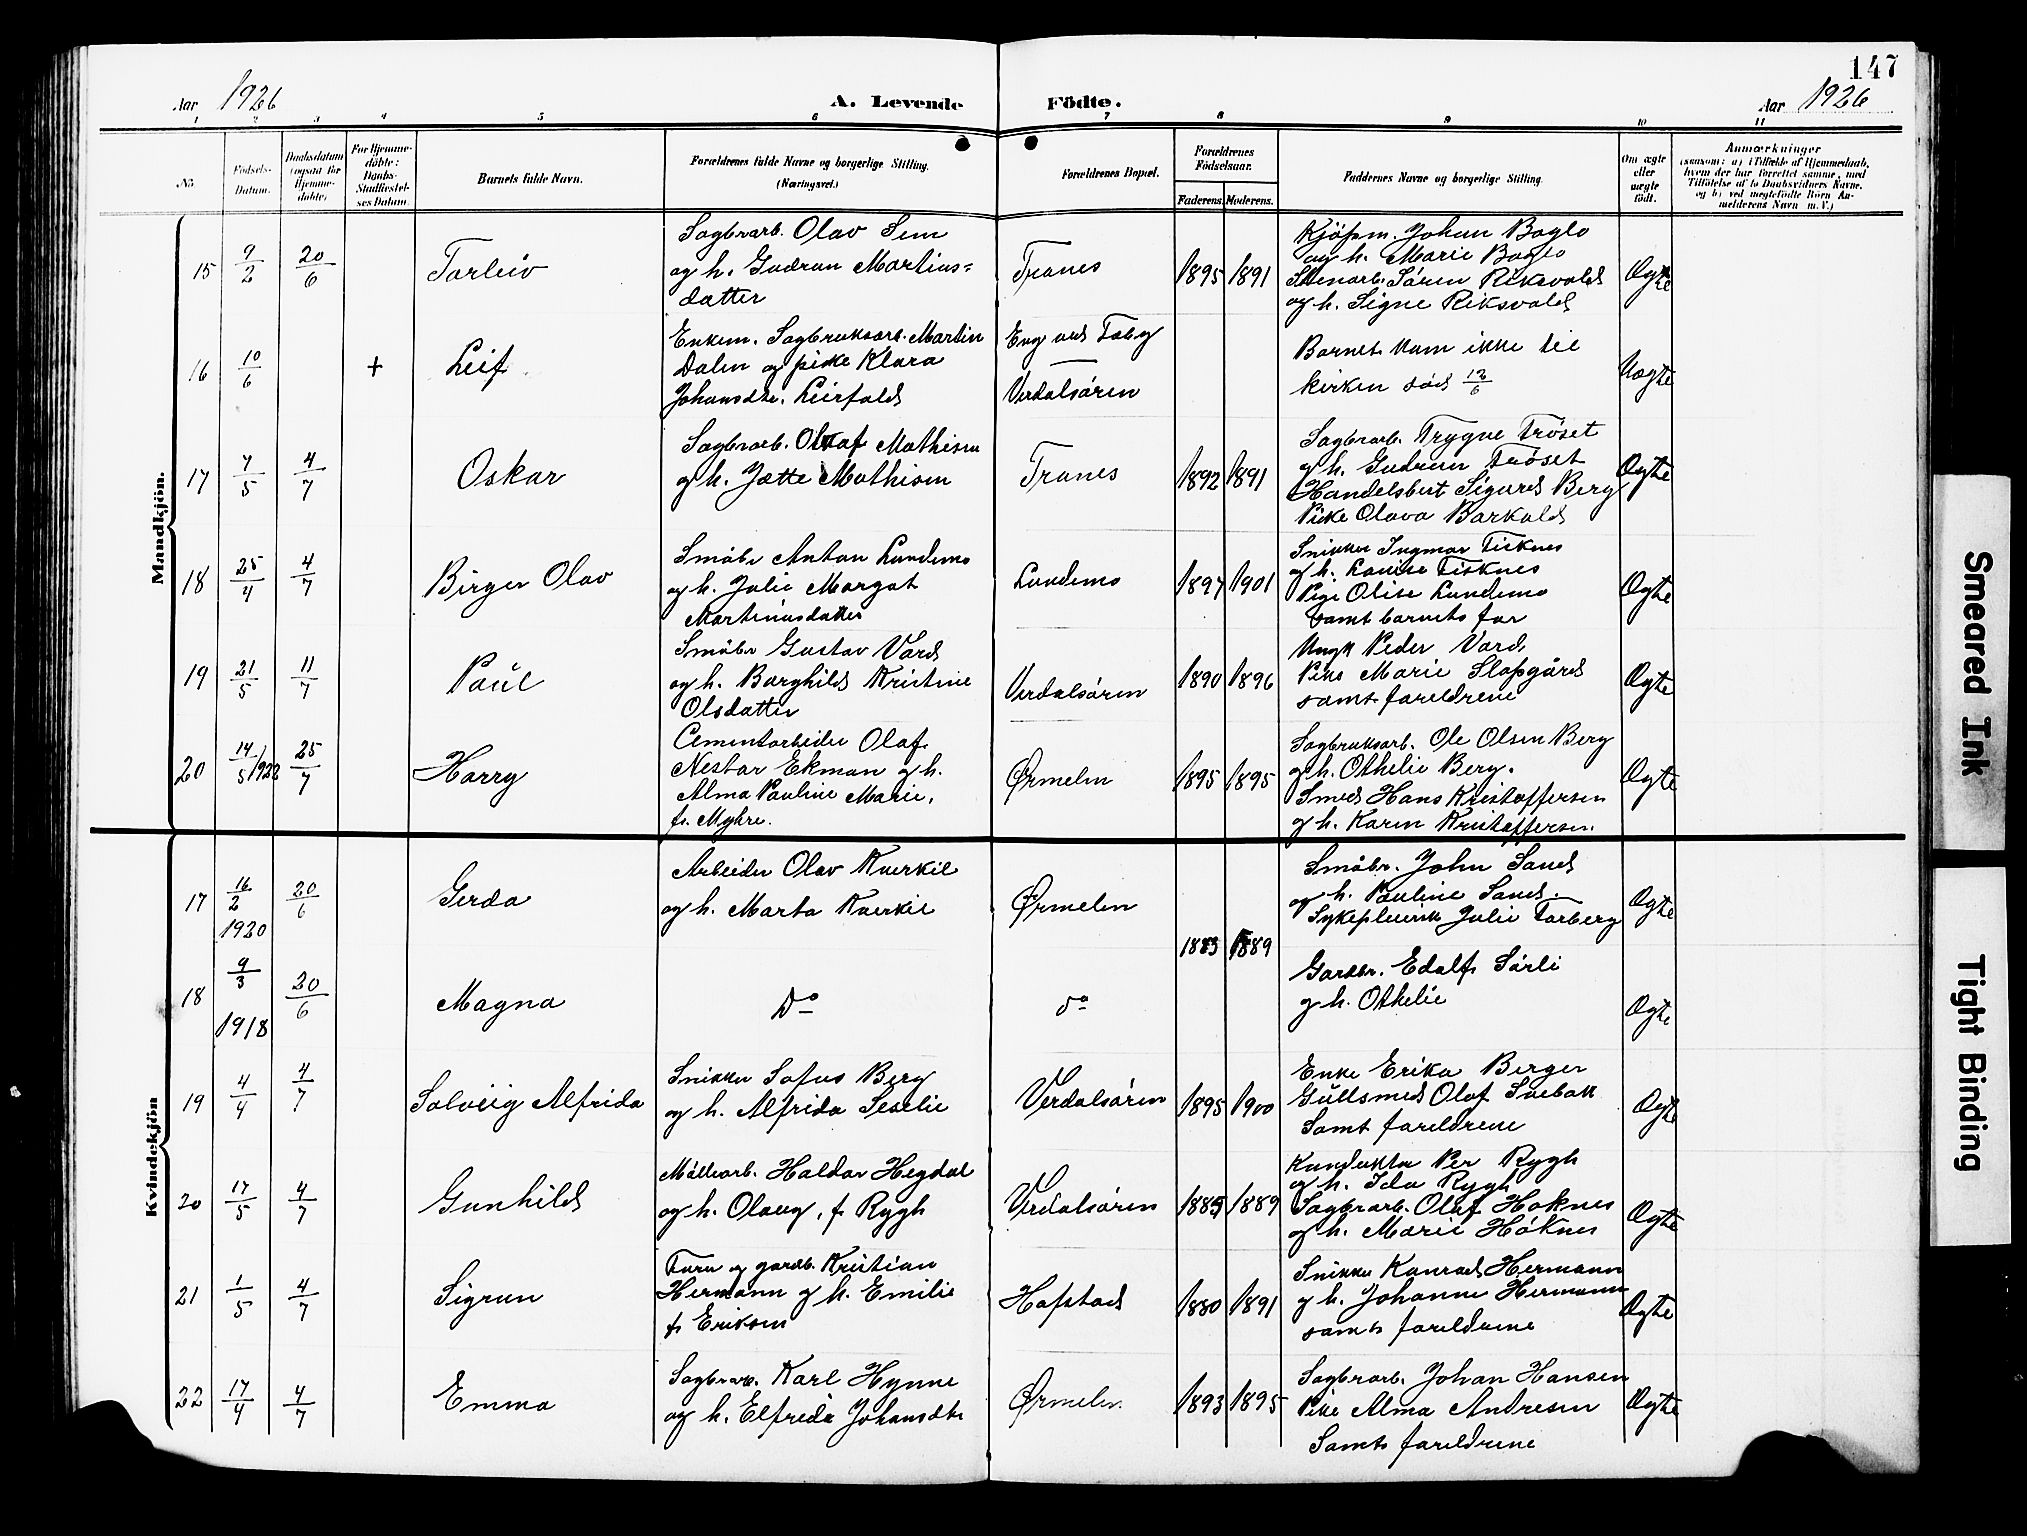 147
Aar 1926
A. Levende
Födte.
Aar 1926
1 2 3 4 5 6 7 8 9 10 11
No.
Födsels-
Datum.
Daabsdatum
(ogsaa for
Hjemme-
döbte)
For Hjemme-
döbte:
Daabs-
Stadfæstel-
ses Datum.
Barnets fulde Navn.
Forældrenes fulde Navne og borgerlige Stilling.
(Næringsvei.)
Forældrenes Bopæl.
Forældrenes
Födselsaar.
Faderens. Moderens.
Faddernes Navne og borgerlige Stilling.
Om ægte
eller
uægte
født.
Anmærkninger
(saasom: a) i Tilfælde af Hjemmedaab,
hvem der har forrettet samme, med
Tilföielse af to Daabsvidners Navne.
og b) ved uægtefødte Börn An-
melderens Navn m. V.)
Mandkjön.
15 9/2 20/6 Torleiv
Sagbrarb. Olav Sem
og h. Gudrun Martinus-
datter
Tranes
1895 1891
Kjöpm. Johan Baglo
og h. Marie Baglo
Stenarb. Sören Riksvold
og h. Signe Riksvold
Ægte
16 10/6 + Leif
Enkem. Sagbruksarb. Martin
Dalen og pike Klara
Johansdtr. Leirfald
Eng ved Faby
Verdalsören
Barnet kom ikke til
kirken död 12/6
Uægte
17 7/5 4/7 Oskar
Sagbrarb. Olaf Mathisen
og h. Jette Mathisen
Tranes
1892 1891
Sagbrarb. Trygve Tröset
og h. Gudrun Tröset
Handelsbest Sigurd Berg
Pike Olava Barkald
Ægte
18 25/4 4/7 Birger Olav
Småbr Anton Lundemo
og h. Julie Margot
Martinusdatter
Lundemo
1897 1901
Snikker Ingmar Fisknes
og h. Louise Fisknes
Pige Olise Lundemo
samt barnets far
Ægte
19 21/5 11/7 Paul
Småbr Gustav Vard
og h. Borghild Kristine
Olsdatter
Verdalsören
1890 1896
Ungk Peder Vard
Pike Marie Slapgård
samt foreldrene
Ægte
20 14/5 1922 25/7 Harry
Cementarbeider Olaf
Nestor Ekman og h.
Alma Pauline Marie,
f. Myhre.
Ørmelen
1895 1895
Sagbruksarb. Ole Olsen Berg
og h. Othelie Berg.
Smed Hans Kristoffersen
og h. Karen Kristoffersen.
Ægte
Kvindekjön
17 16/2 1920 20/6 Gerda
Arbeider Olav Kverkil
og h. Marta Kverkil
Ørmelen
1883 1889
Småbr. John Sand
og h. Pauline Sand.
Sykepleiersk Julie Forberg
Ægte
18 9/3 1918 20/6 Magna
Do
do
Gardbr. Edolf Sörli
og h. Othelie
Ægte
19 4/4 4/7 Solveig Alfrida
Snikker Sofus Berg
og h. Alfrida Seselie
Verdalsören
1895 1900
Enke Erika Berger
Gullsmed Olaf Svebak
Samt foreldrene
Ægte
20 17/5 4/7 Gunhild
Möllearb. Haldor Hegdal
og h. Olaug, f. Rygh
Verdalsören
1885 1889
Konduktör Per Rygh
og h. Ida Rygh
Sagbrarb. Olaf Hoknes
og h. Marie Höknes
Ægte
21 1/5 4/7 Sigrun
Turn og gardb. Kristian
Hermann og h. Emilie
f. Eriksen
Hofstad
1880 1891
Snikker Konrad Hermann
og h. Johanne Hermann
samt foreldrene
Ægte
22 17/4 4/7 Emma
Sagbrarb. Karl Hynne
og h. Elfrida Johansdtr
Ørmelen
1893 1895
Sagbrarb. Johan Hansen
Pike Alma Andresen
Samt foreldrene
Ægte
Smeared Ink
Tight Binding